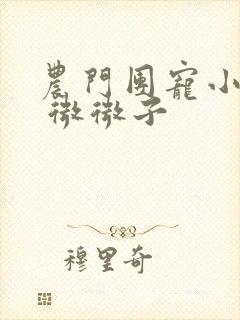 農門團寵小
微微子
穆里奇